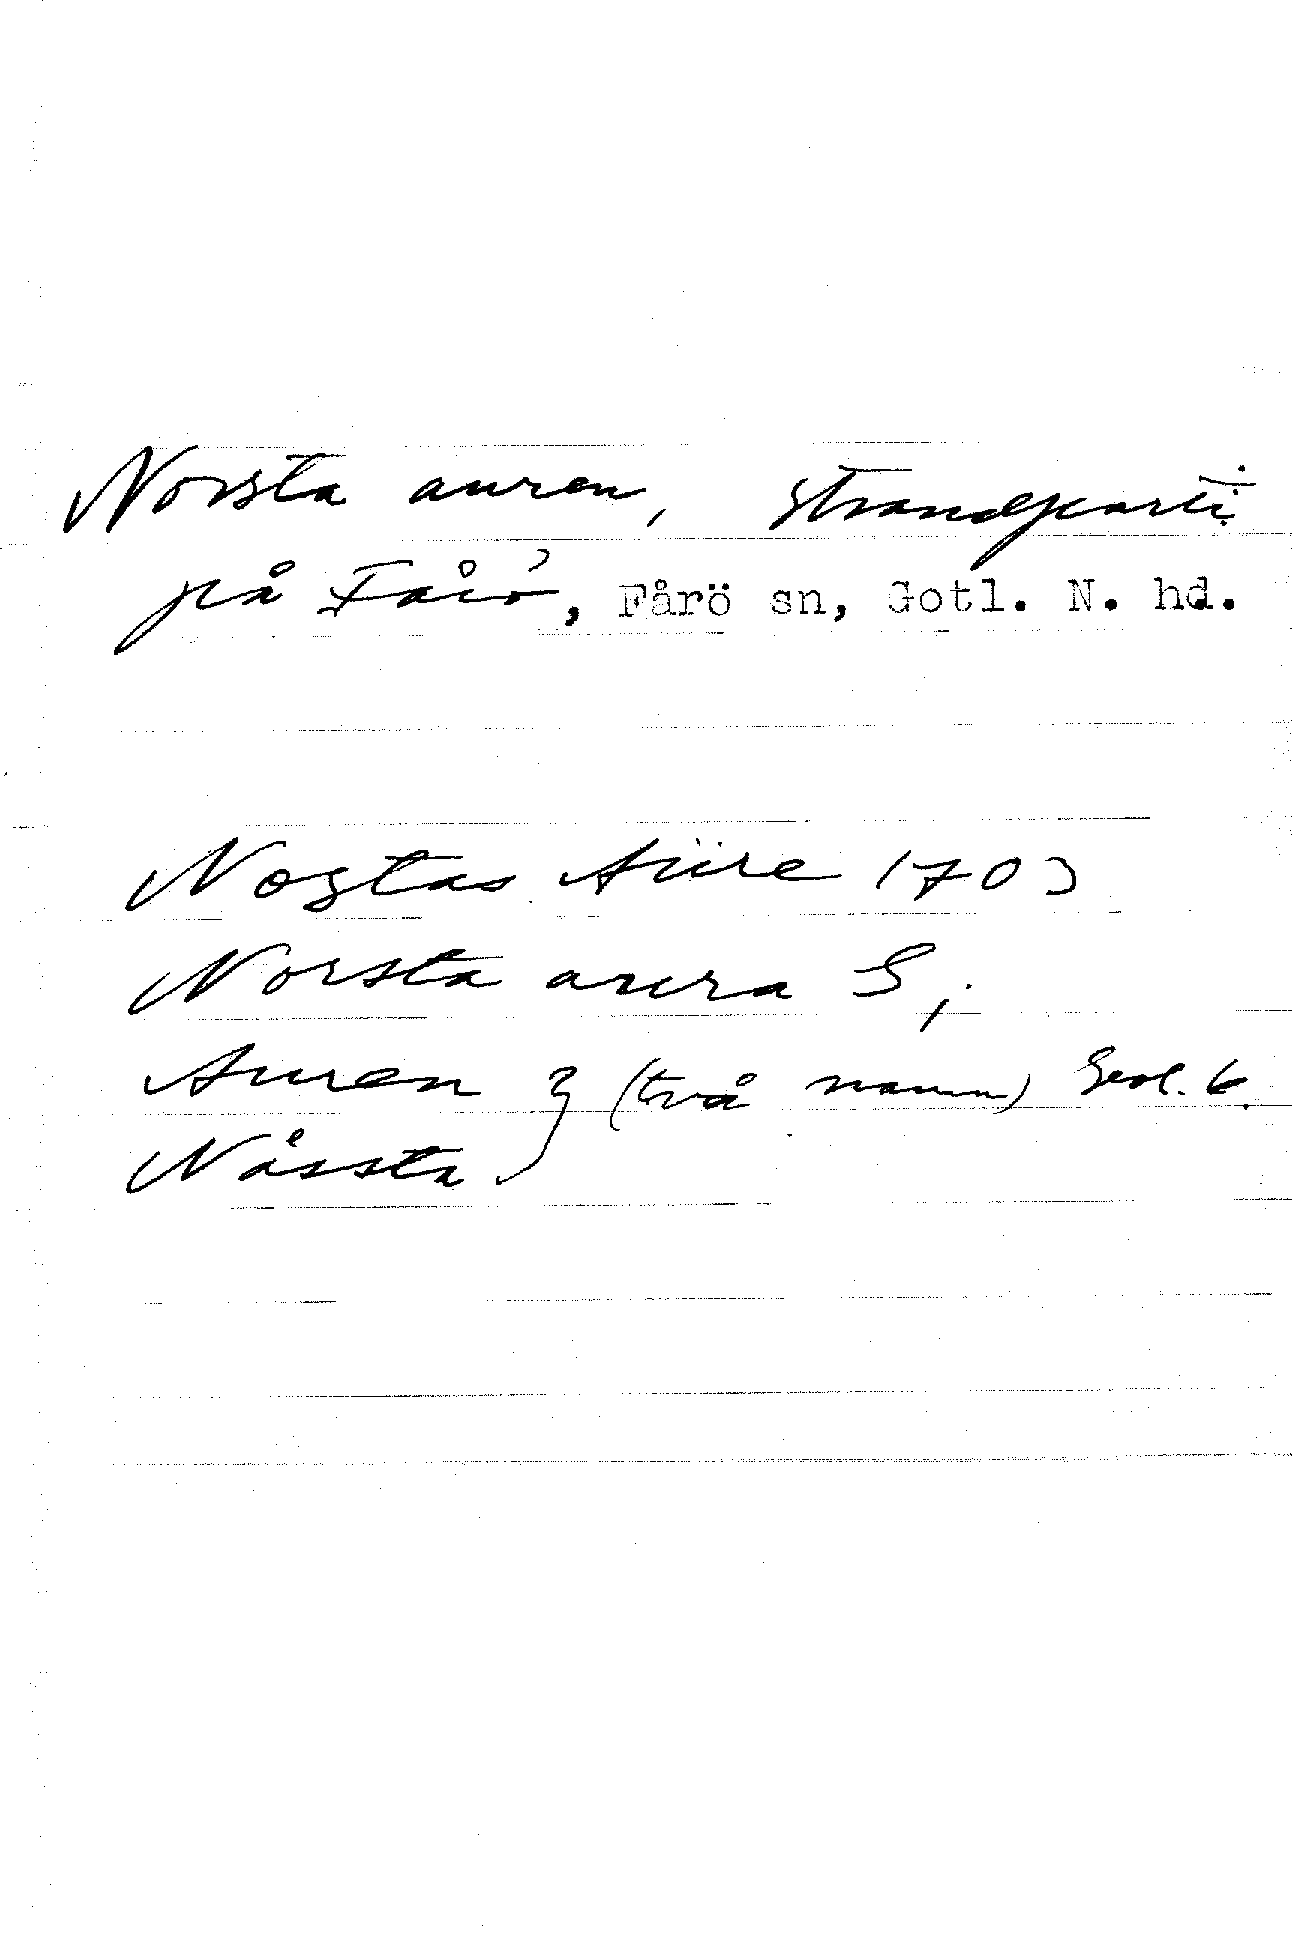 Norsta auren, strandparti
på Fårö, Fårö sn, Gotl. N. hd.
Nogtas Aüre 1703
Norsta aura S;
Auren } (två namn) Geol. 6.
Nåssta